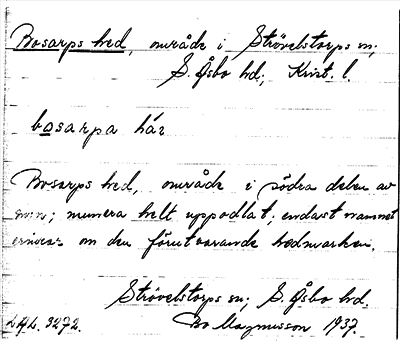 Bosarps hed, område i Strövelstorps sn;
S. Åsbo hd; Krist. l.
bosarpa här
Bosarps hed, området i södra delen av
sn:n; numera helt uppodlat; endast namnet
erinrar om den förutvarande hedmarken.
Strövelstorps sn; S. Åsbo hd.
LAL. 3272. Bo Magnusson 1937.